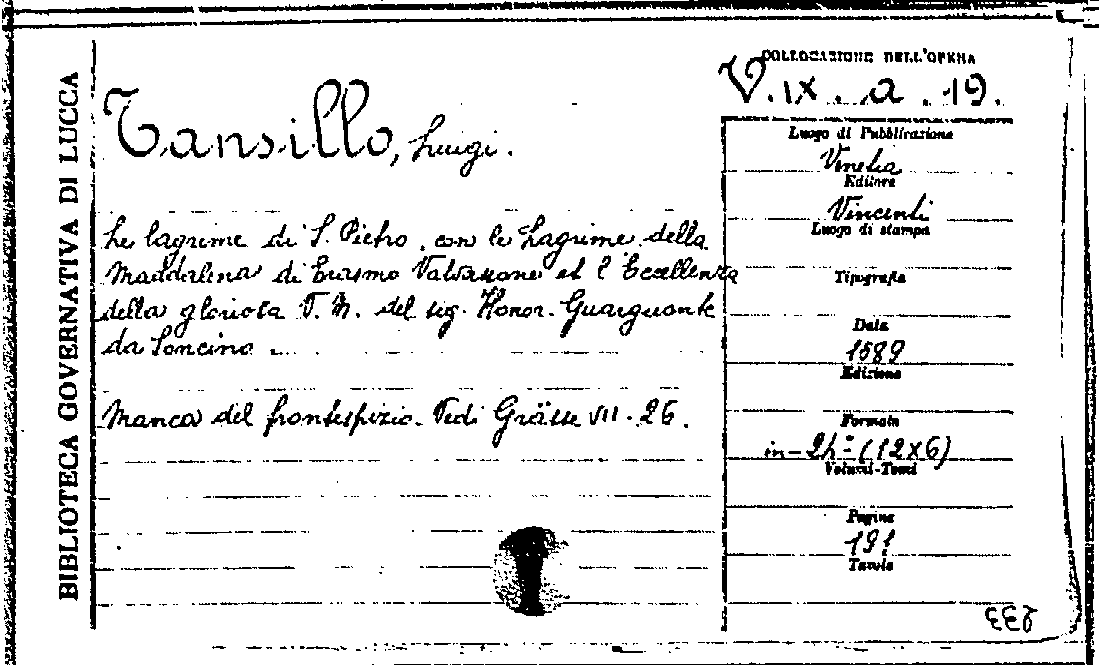 BIBLIOTECA GOVERNATIVA DI LUCCA
Tansillo, Luigi.
Le lagrime di S. Pietro, con le Lagrime della
Maddalena di Erasmo Valvasone et l'Eccellenza
della gloriosa V. M. del sig. Honor. Guarguante
da Soncino.
Manca del frontespizio. Vedi Grässe VII. 26.
COLLOCAZIONE DELL'OPERA
V. IX. a. 19.
Luogo di Pubblicazione
Venetia
Editore
Vincenti
Luogo di stampa
Tipografia
Data
1589
Edizione
Formato
in-24° (12x6)
Volumi-Tomi
Pagine
191
Tavole
233